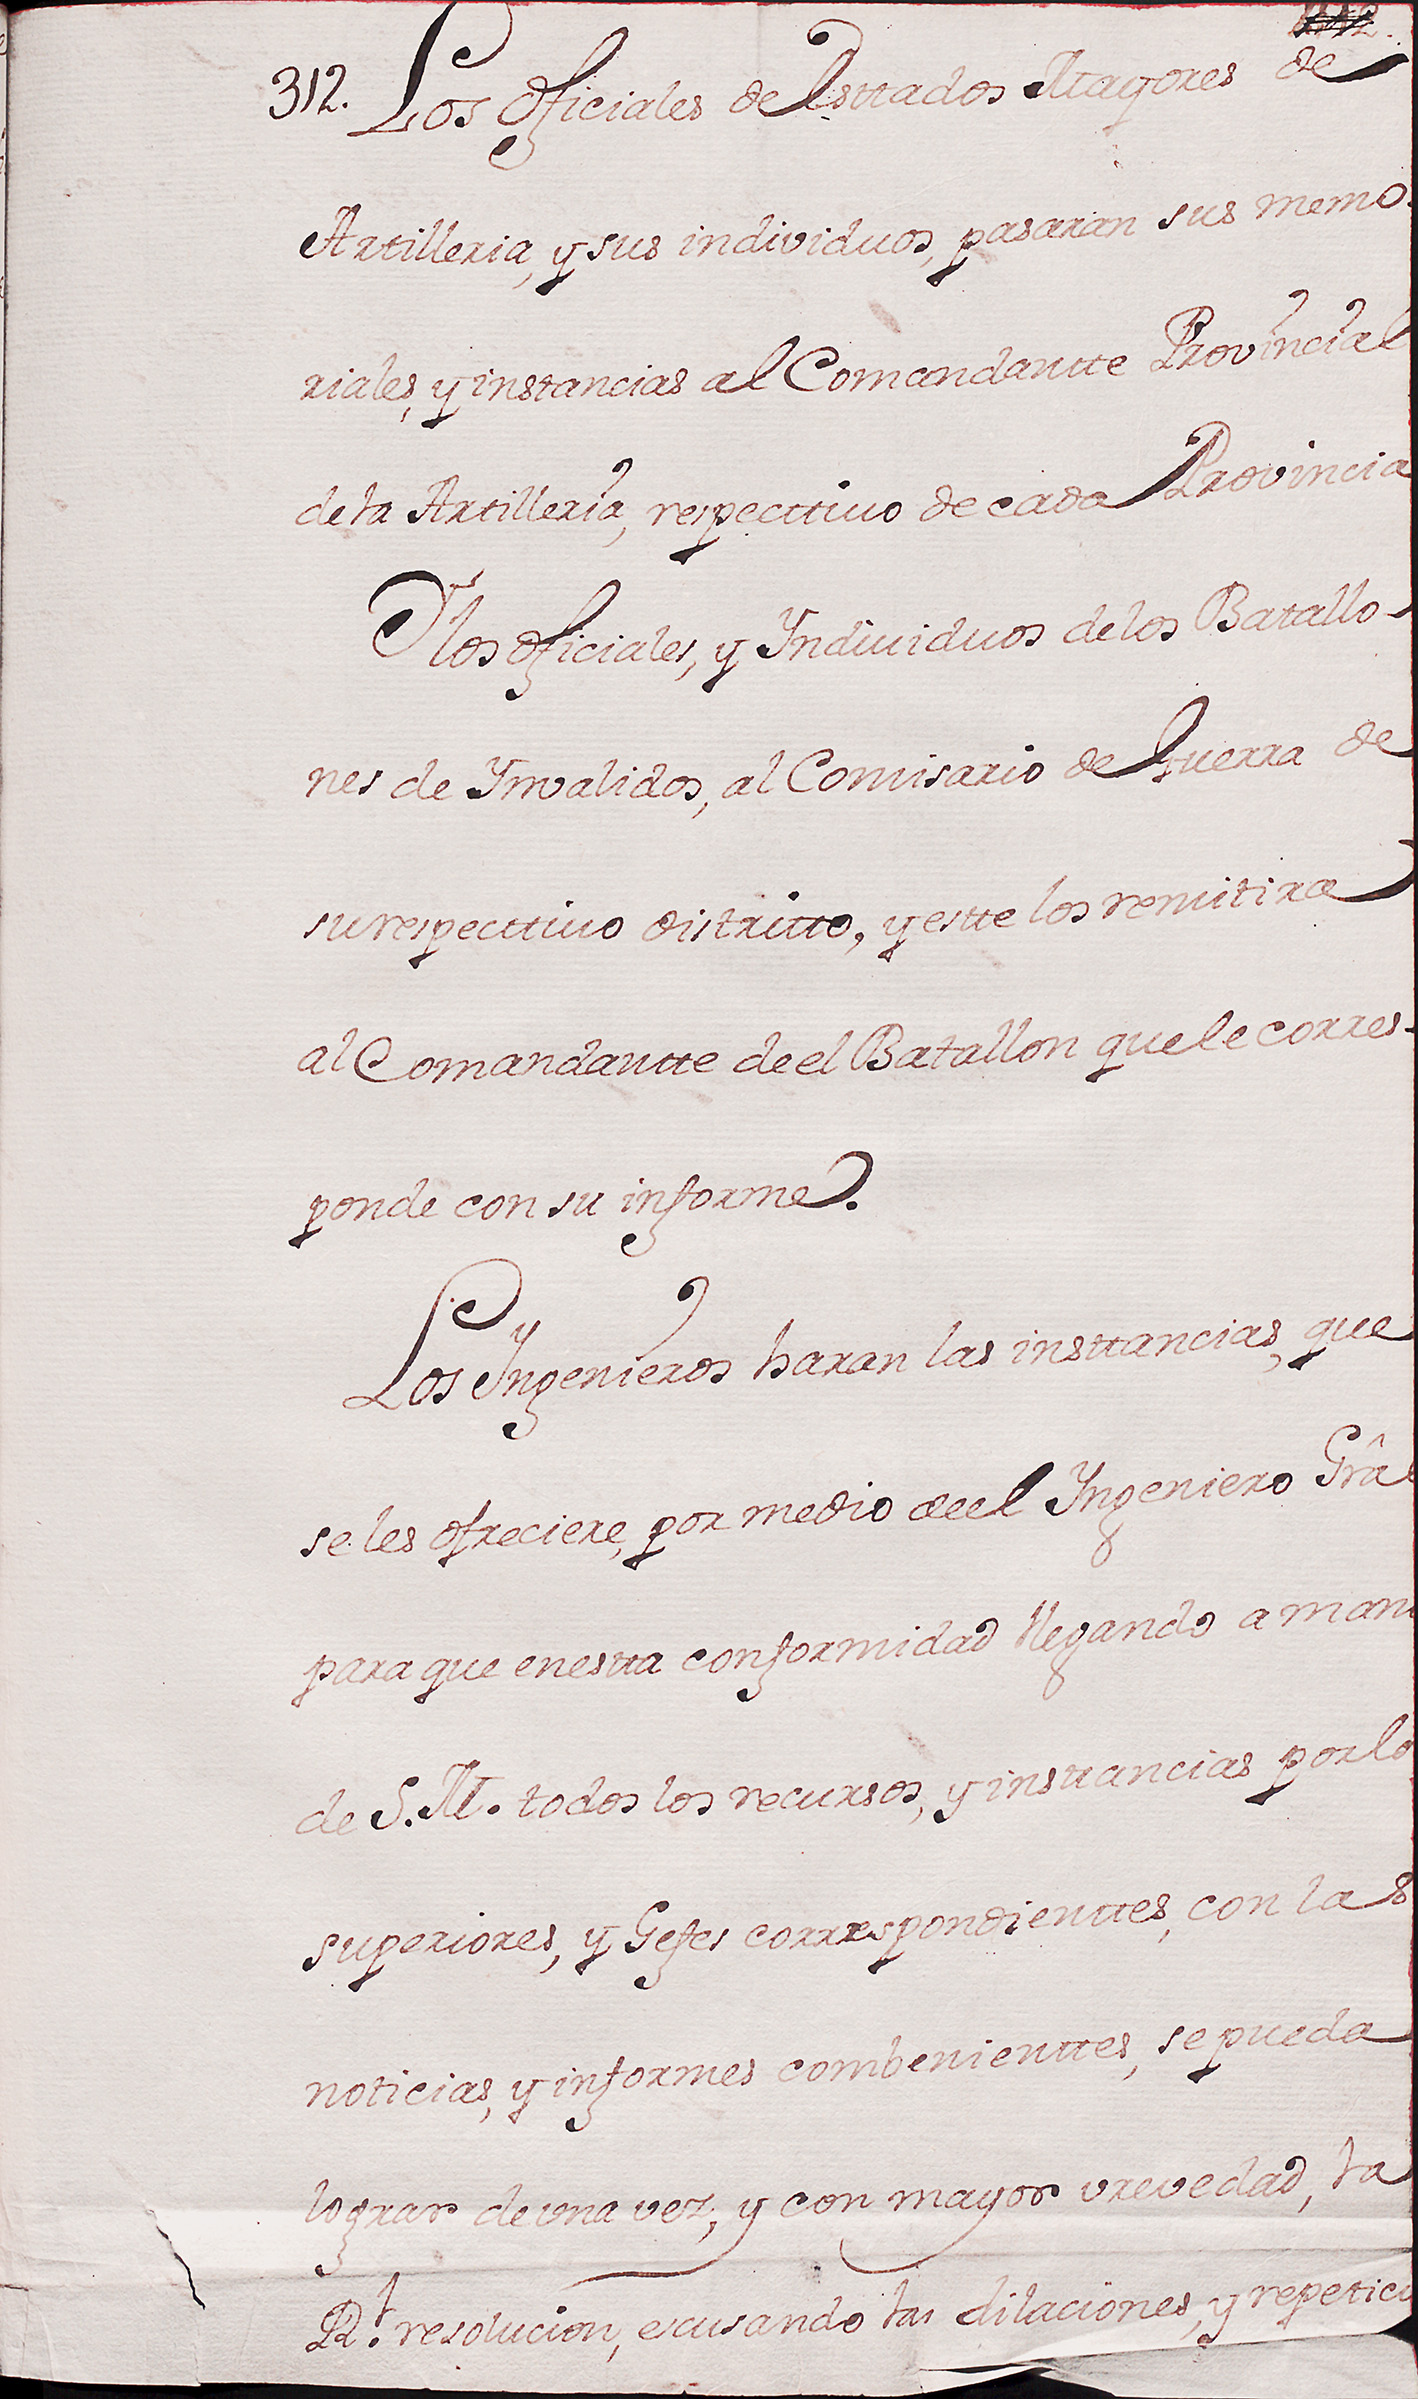 312. Los Oficiales de Esttados Mayores de
Artilleria, y sus individuos, pasaran sus memo-
riales, y instancias al Comandantte Provincial
de la Artilleria, respecttiuo de cada Provincia
Y los Oficiales, y Yndiuiduos de los Batallo-
nes de Ynvalidos, al Comisario de Guerra de
su respecttiuo distritto, y estte los remitira
al Comandantte de el Batallon que le corres-
ponde con su informe.
Los Yngenieros haran las insttancias, que
se les ofreciere, por medio de el Yngeniero Grâl
para que en estta conformidad llegando a man
de S. M. todos los recursos, y insttancias por lo
superiores, y Gefes correspondienttes, con las
noticias, y informes combenienttes, se pueda
lograr de una vez, y con mayor vrevedad, la
Rl. resolucion, escusando las dilaciones, y repetici